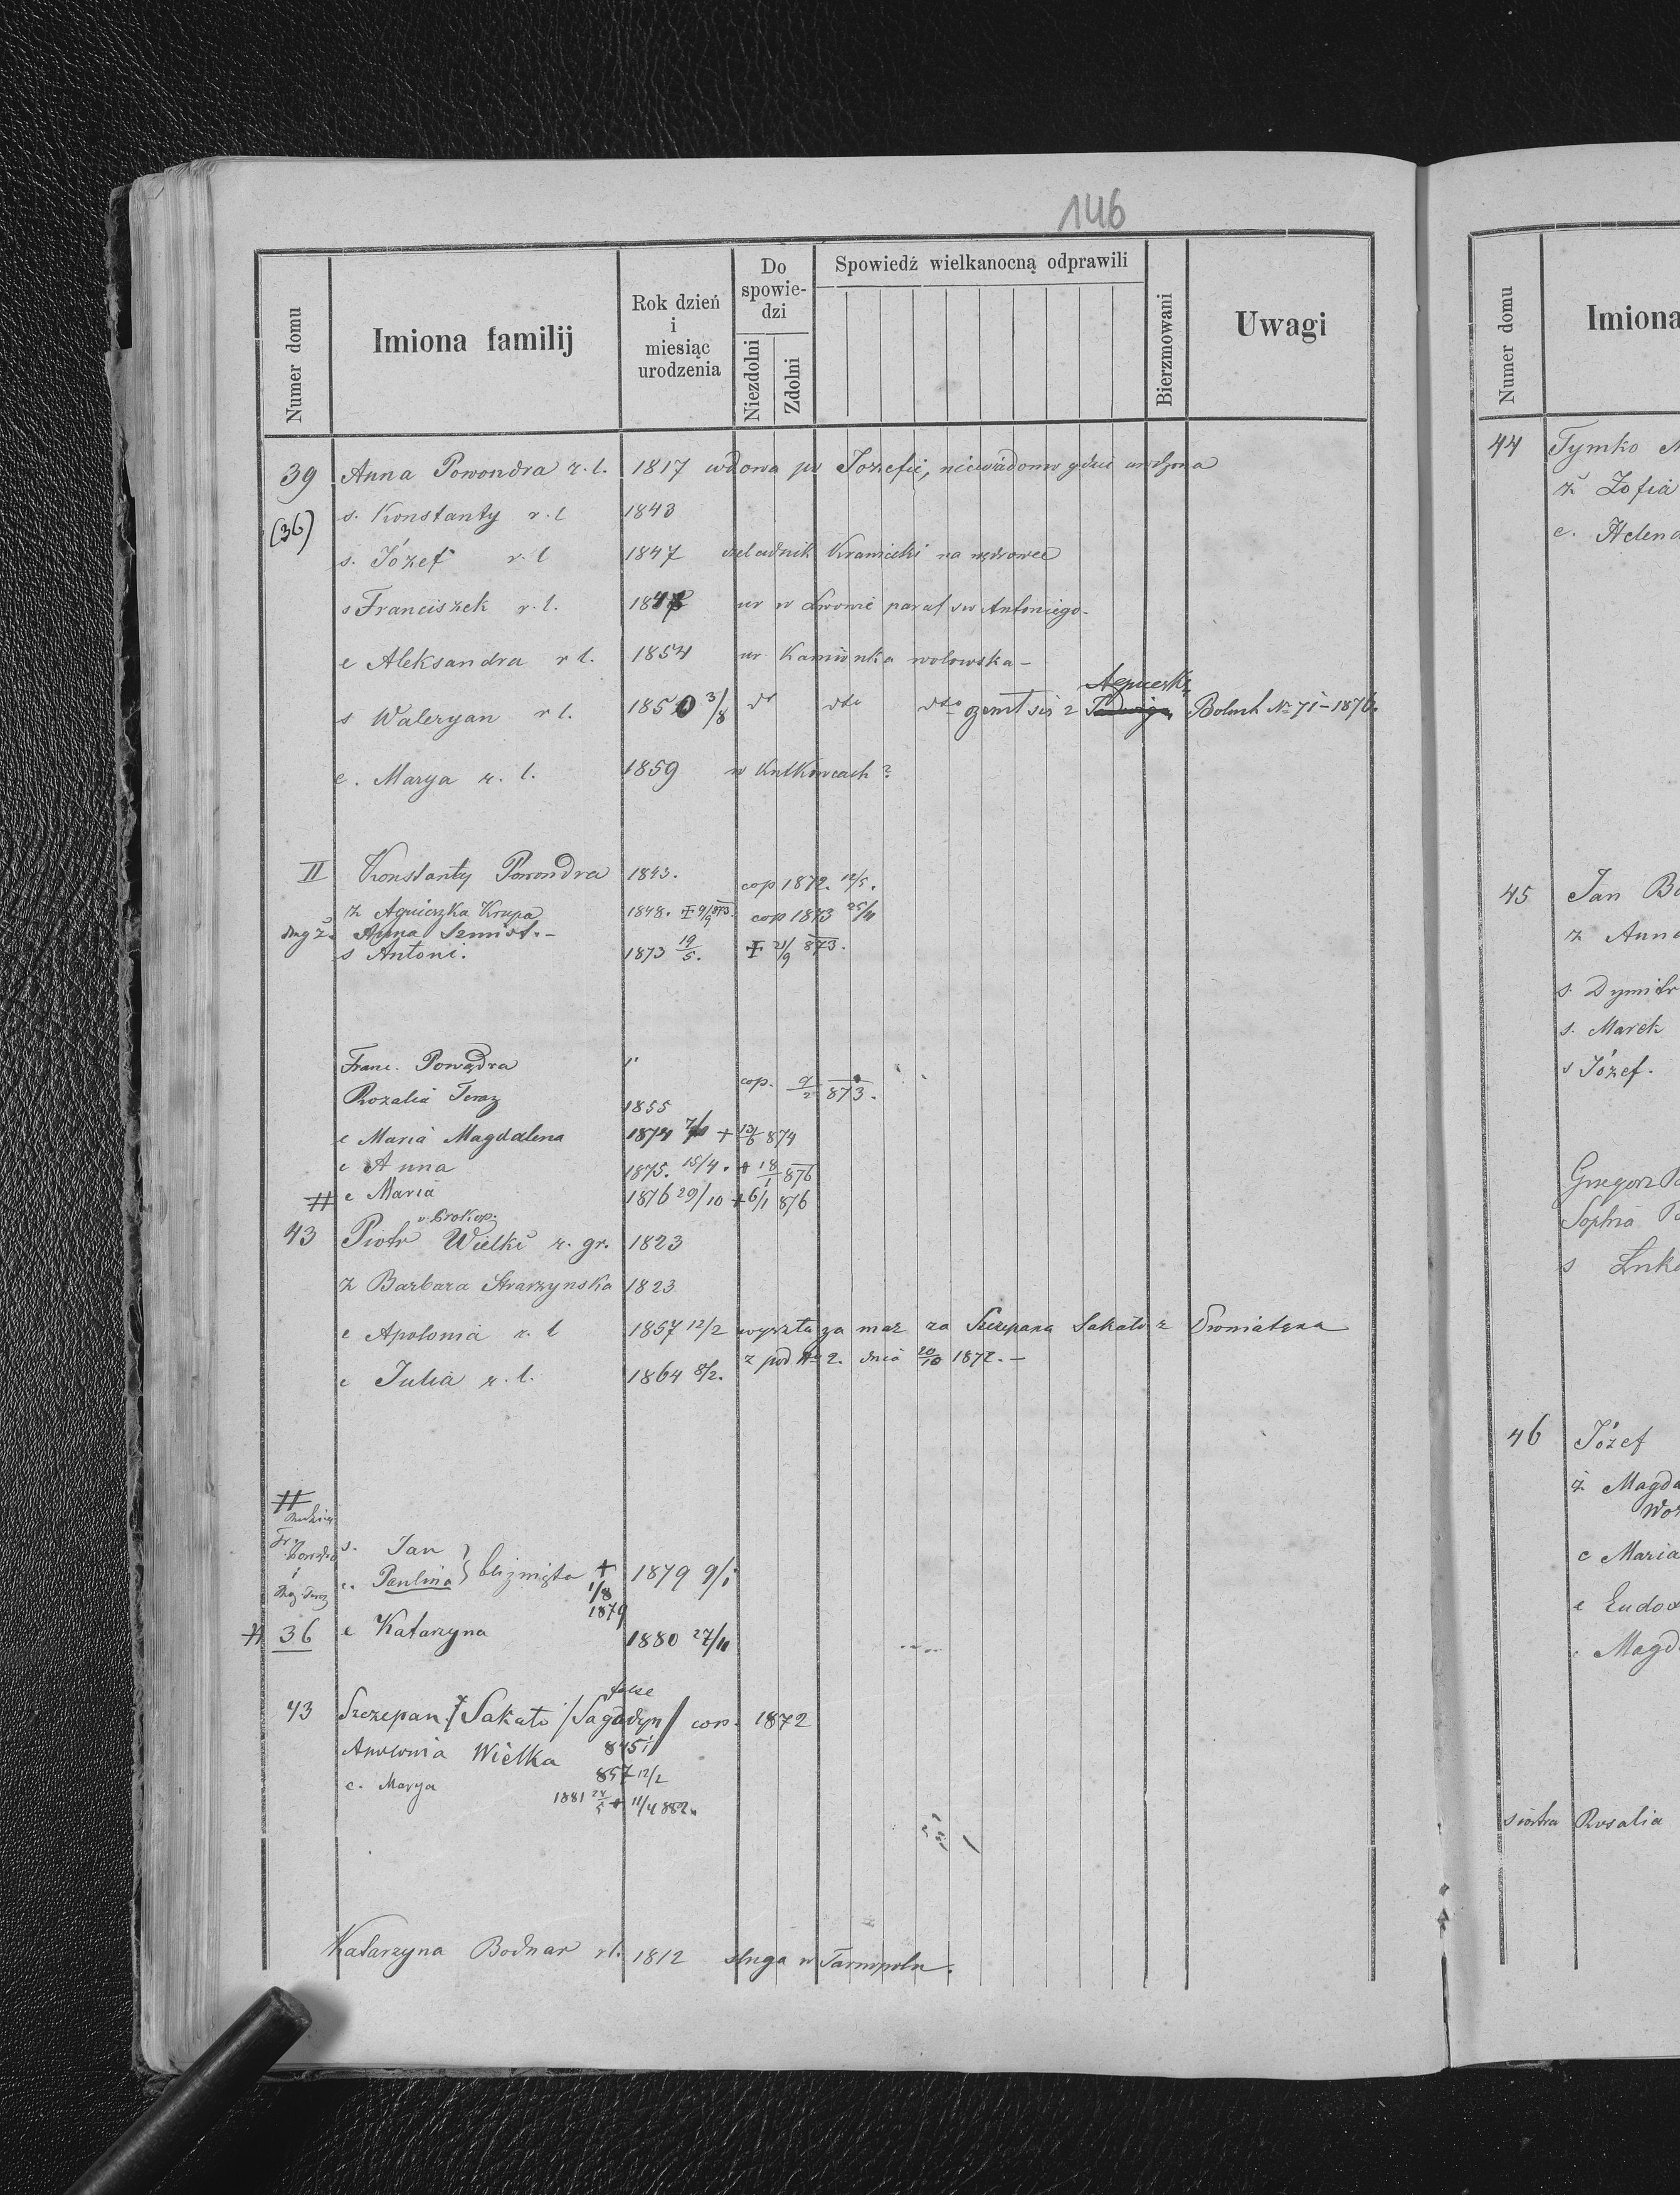 146
Numer domu
Imiona familij
Rok dzień i miesiąc urodzenia
Do spowiedzi
Niezdolni
Zdolni
Spowiedź wielkanocną odprawili
Bierzmowani
Uwagi
39 Anna Powondra r. l. 1817 wdowa po Jozefie, niewiadomo gdzie urodzona
(36) s. Konstanty r. l 1843
s. Józef r. l 1847 czeladnik Kramicki na
s Franciszek r. l. 184 ur w Lwowie paraf sw Antoniego-
c Aleksandra r l. 1854 ur Kamionka wolowska-
Agnieszką
s Waleryan r l. 1850 3/8 dt dto dto ożenił się z Jadwigą Boluch No 71-1876.
c. Marya r. l. 1859 w Kutkowcach?
II Konstanty Powondra 1843. cop 1872. 12/5.
ż Agnieszka Krupa 1848. 873. cop 1873 25/11
drug ż. Anna
s Antoni. 1873 19/5. 21/9 873.
Franc. Powądra
Rozalia Teraz 1855 cop. 9/2 873.
c Maria Magdalena 1874 + 874
c Anna 1875. 15/4. + 18/1 876
# c Maria 1876 29/10 + 6/1 876
v. Prokop.
43 Piotr Wielki r. gr. 1823
ż Barbara Starzynska 1823
c Apolonia r. l 1857 12/2 wyszła za mąż za Szczepana Sakato z Dromiatyna
z pod No 2. dnia 20/10 1872.-
c Julia r. l. 1864 8/2.
#
Fr. Powądra
i
s. Jan
c. Paulina } bliźnięta + 1879 9/1
1/8
1879
# 36 c Katarzyna 1880 27/11
false
43 Szczepan Sakato /Sagadyn/ cop. 1872
845
Apolonia Wielka 857 12/2
c. Marya 1881 24/5 + 11/4 882.
Katarzyna Bodnar rl. 1812 sługa w Tarnopolu.
Numer domu
Imiona
44 Tymko
ż Zofia
c. Helena
45 Jan
ż Anna
s. Dymitr
s. Marek
s Józef.
Grzegorz
Sophia
s
46 Józef
ż Magda
c Maria
c Eudox
Magd
siostra Rosalia